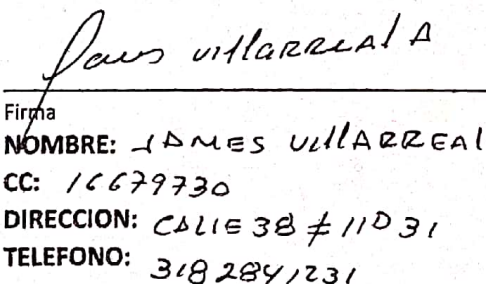 James Villarreal A
Firma
NOMBRE: JAMES VillARREAl
CC: 16679730
DIRECCION: CALLE 38 # 11D 31
TELEFONO: 318 2841231